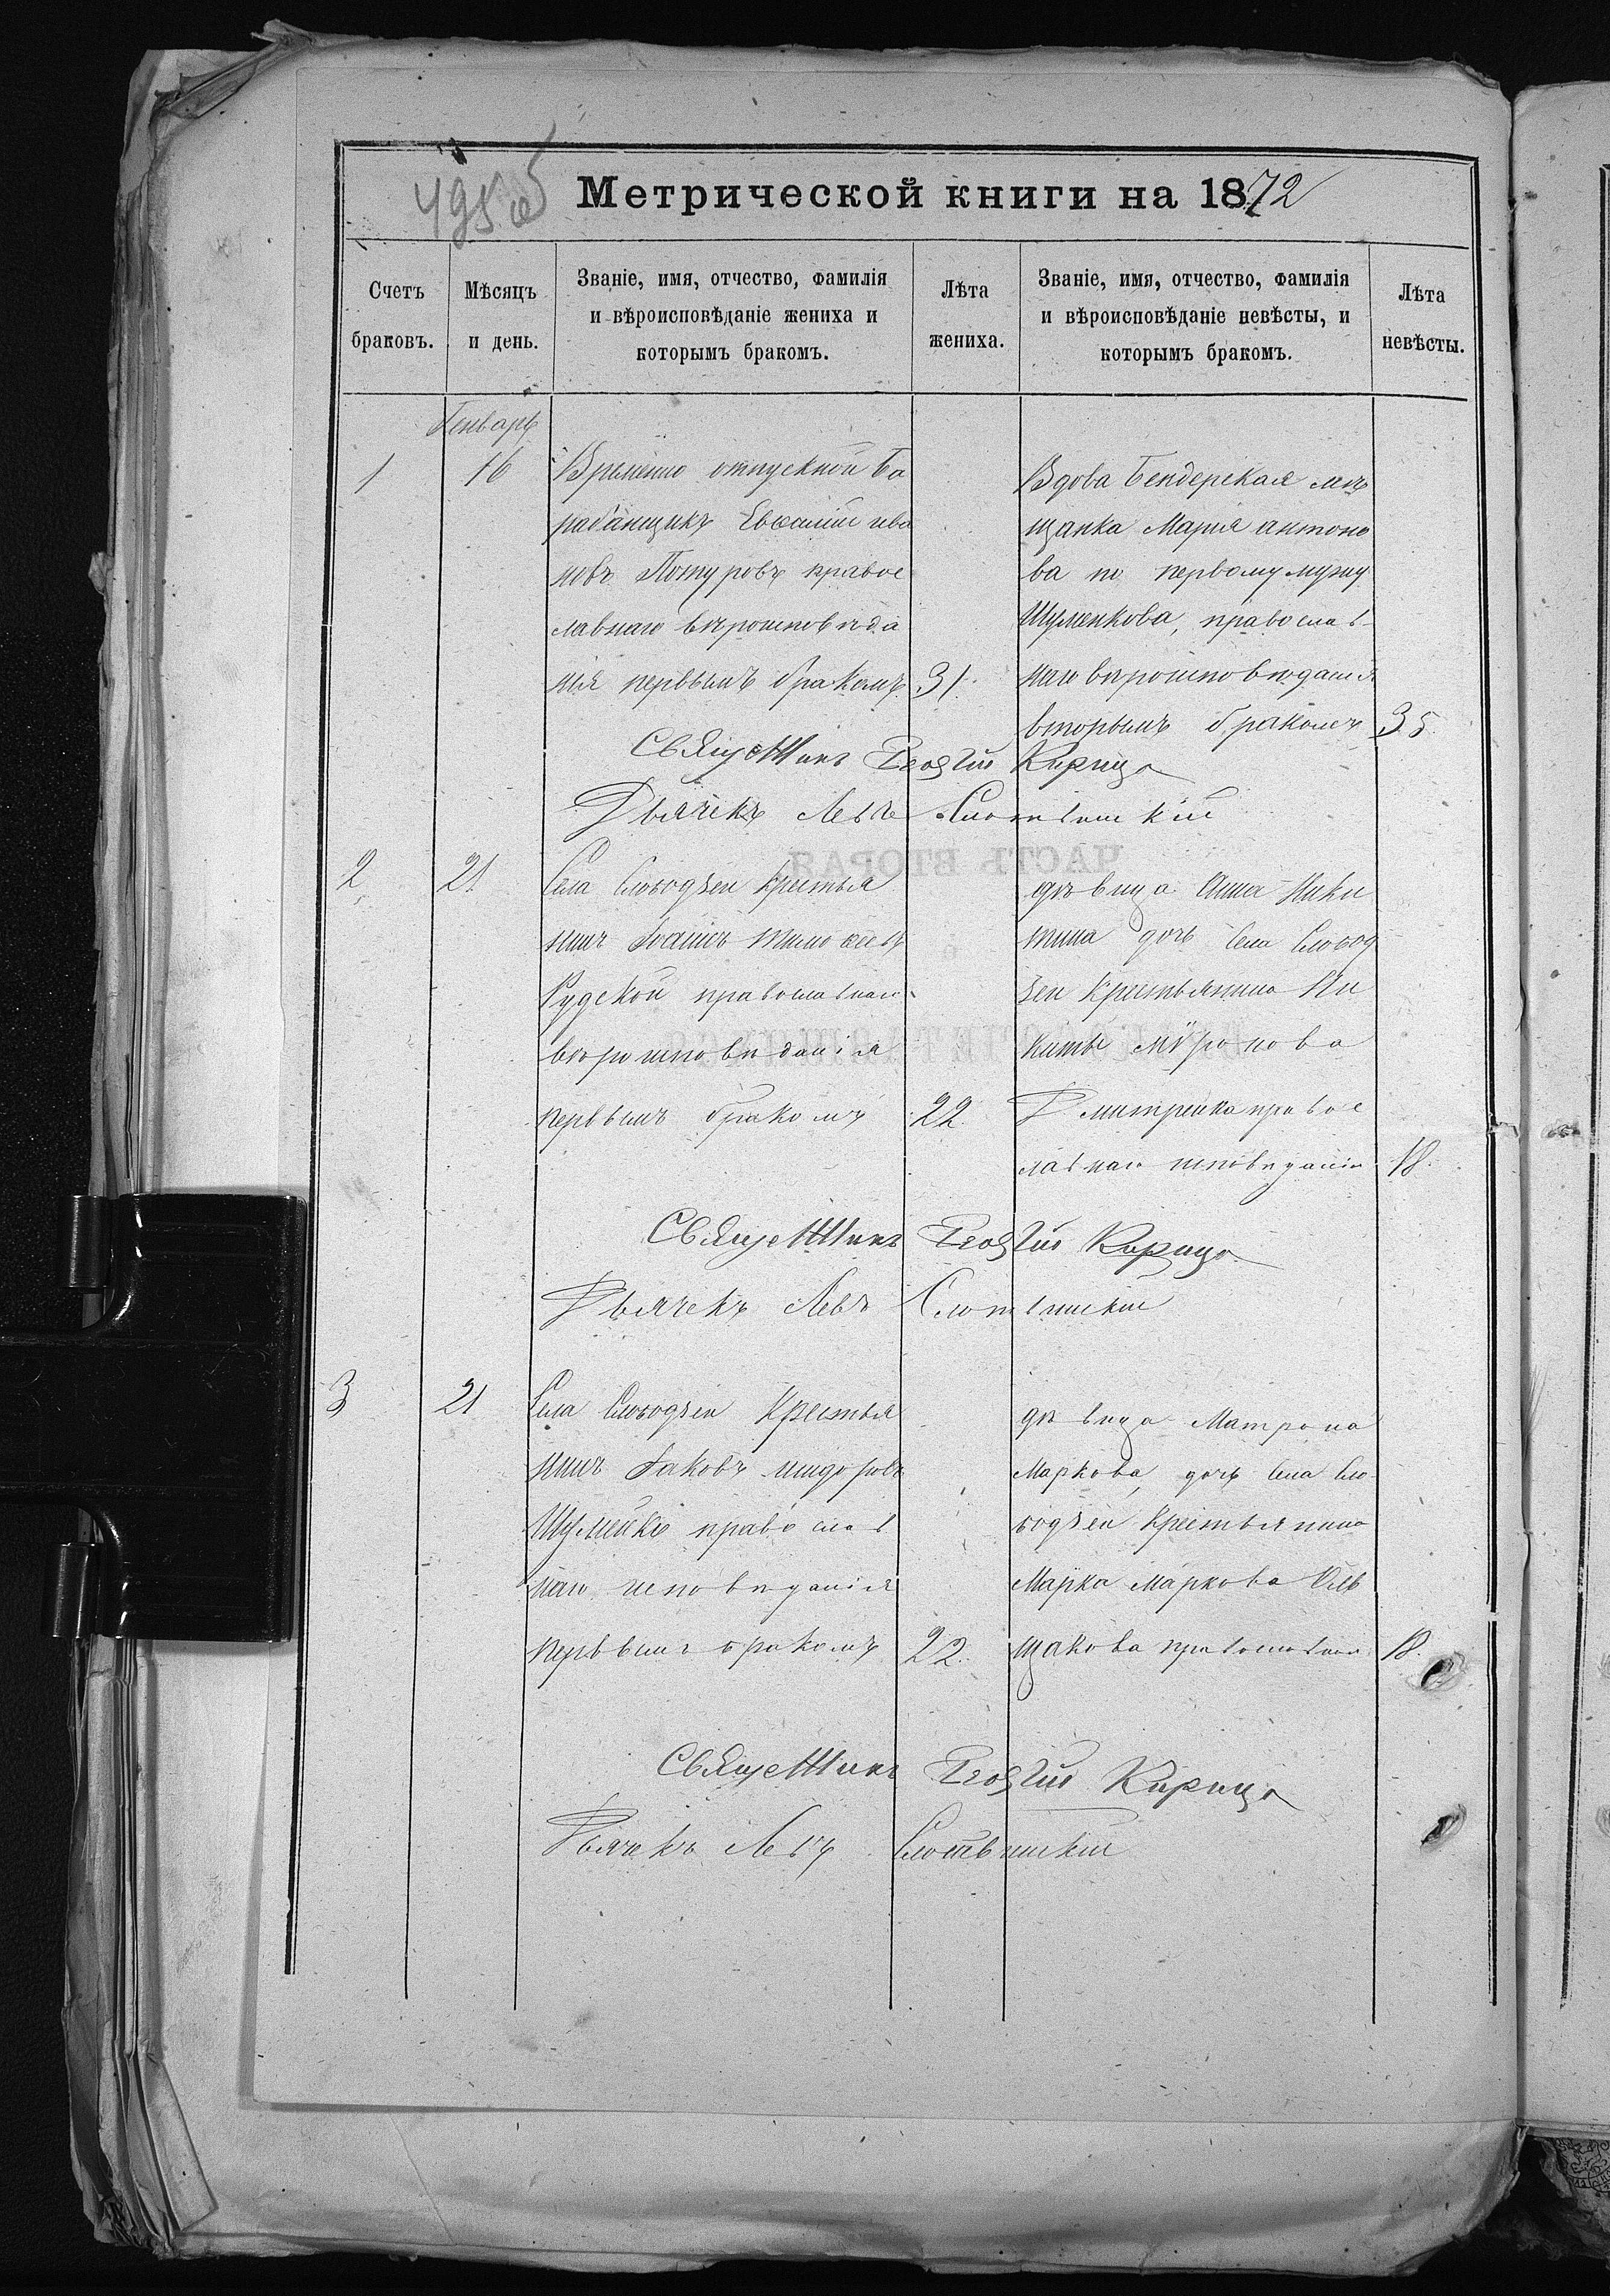 495 об
Метрической книги на 1872
Счетъ браковъ.
Мѣсяцъ и день.
Званіе, имя, отчество, фамилія и вѣроисповѣданіе жениха и которымъ бракомъ.
Лѣта жениха.
Званіе, имя, отчество, фамилія и вѣроисповѣданіе невѣсты, и которымъ бракомъ.
Лѣта невѣсты.
Генварь
1
16
Временно отпускной Ба
рабанщикъ Евсевій ива
новъ Потуровъ правос
лавнаго вѣроисповѣда
нія первымъ бракомъ
31.
Вдова Бендерская мѣ
щанка Марія антоно
ва по первому мужу
Шуменкова, православ
наго вѣроисповѣданія
вторымъ бракомъ
35.
Священникъ Георгій Кирица
Дьячекъ Левъ Слотвинскій
2
21
Села Слободзеи крестья
нинъ Іоаннъ тимофеевъ
Рудской православнаго
вѣроисповѣданія
первымъ бракомъ
22.
дѣвица Анна Ники
тина дочь села Слобод
зеи крестьянина Ни
киты Мѵронова
Дмитренка правос
лавнаго исповѣданія
18.
Священникъ Георгій Кирица
Дьячекъ Левъ Слотвинскій
3
21
Села Слободзеи Крестья
нинъ Іаковъ исидоровъ
Шумейко православ
наго исповѣданія
первымъ бракомъ
22.
дѣвица Матрона
Маркова, дочь села Сло
бодзеи крестьянина
Марка Маркова Оль
щакова православнаго
18.
Священникъ Георгій Кирица
Дьячекъ Левъ Слотвинскій